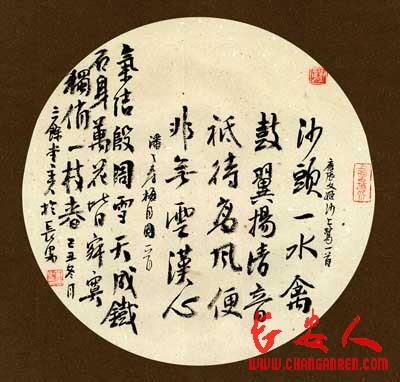 唐張文姬沙上鷺一首
沙頭一水禽
鼓翼揚清音
祗待高風便
非無雲漢心
潘天壽梅月圖一首
氣結殷周雪天成鐵
石身萬花皆寂寞
獨俏一枝春 己丑冬月
三餘堂主人於長安
长安人
WWW.CHANGANREN.COM